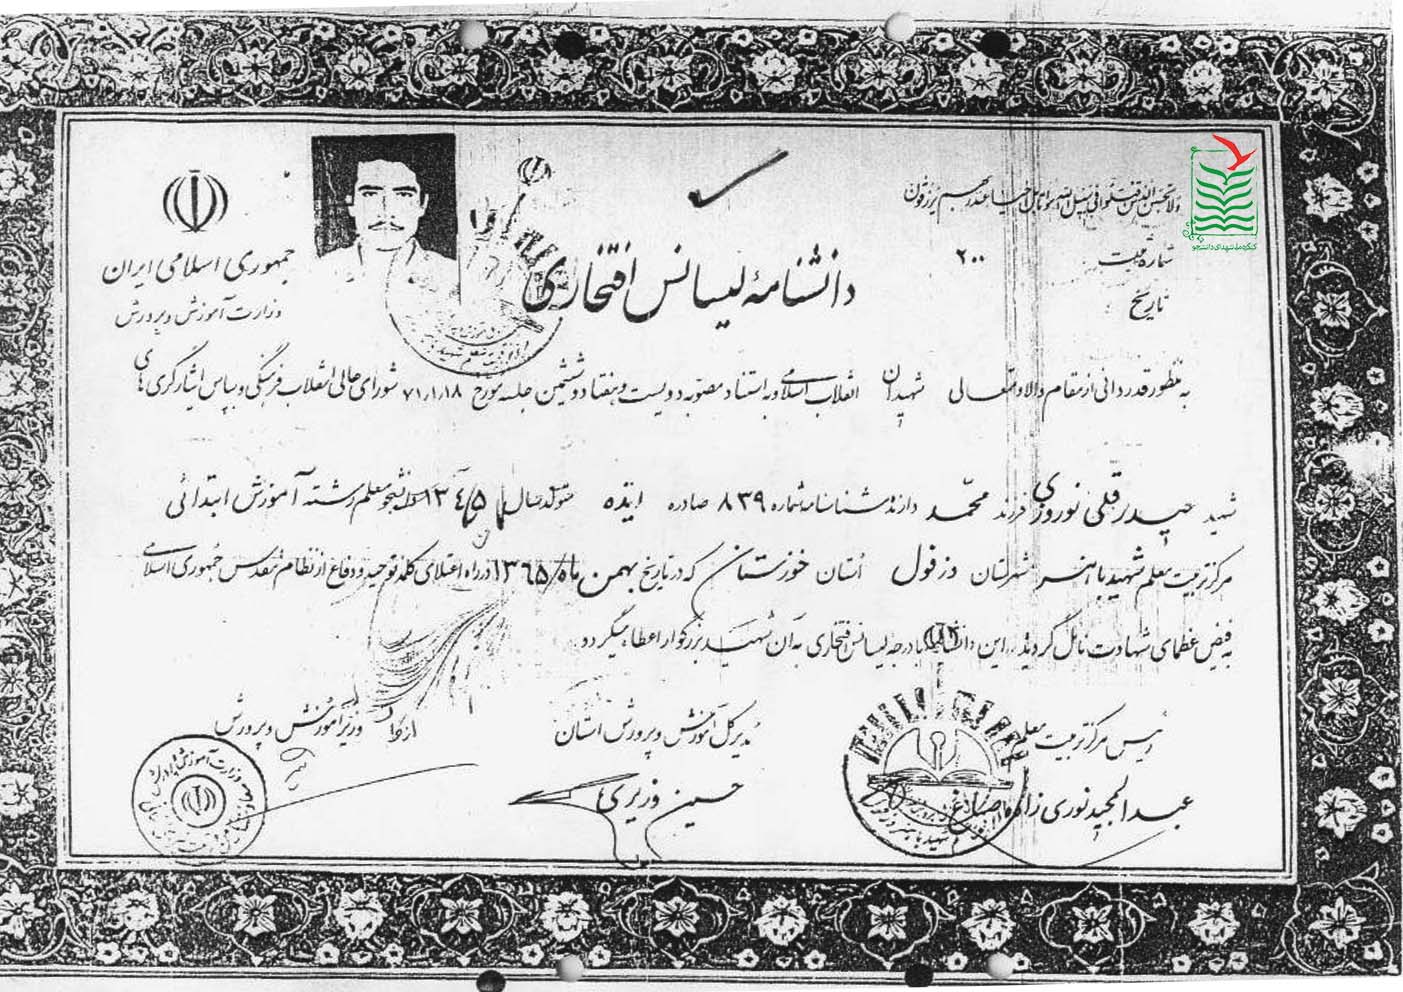 ولا تحسبن الذین قتلوا فی سبیل الله امواتا بل احیاء عند ربهم یرزقون
کنگره ملی شهدای دانشجو
جمهوری اسلامی ایران
وزارت آموزش و پرورش
شماره ثبت ۲۰۰
تاریخ
دانشنامهٔ لیسانس افتخاری
به منظور قدردانی از مقام والا و متعالی شهیدان انقلاب اسلامی و به استناد مصوبه دویست و هفتاد و ششمین جلسه مورخ ۷۱٫۱٫۱۸ شورای عالی انقلاب فرهنگی و بپاس ایثارگری های
شهید حیدرقلی نوروزی فرزند محمّد دارنده شناسنامه شماره ۸۳۹ صادره ایذه متولد سال ۱۳۴۵ دانشجو معلم رشته آموزش ابتدائی
مرکز تربیت معلم شهید باهنر شهرستان دزفول اُستان خوزستان که در تاریخ بهمن ماه/۱۳۶۵ در راه اعتلای کلمه توحید و دفاع از نظام مقدس جمهوری اسلامی
به فیض عظمای شهادت نائل گردید، این دانشنامه با درجه لیسانس افتخاری به آن شهید بزرگوار اعطا میگردد.
رئیس مرکز تربیت معلم
عبدالمجید نوری زاده
مدیر کل آموزش و پرورش استان
حسین وزیری
از طرف وزیر آموزش و پرورش